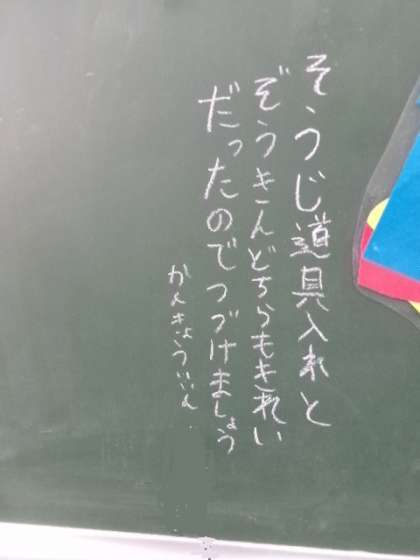 そうじ道具入れと
ぞうきんどちらもきれい
だったのでつづけましょう
かんきょういいん